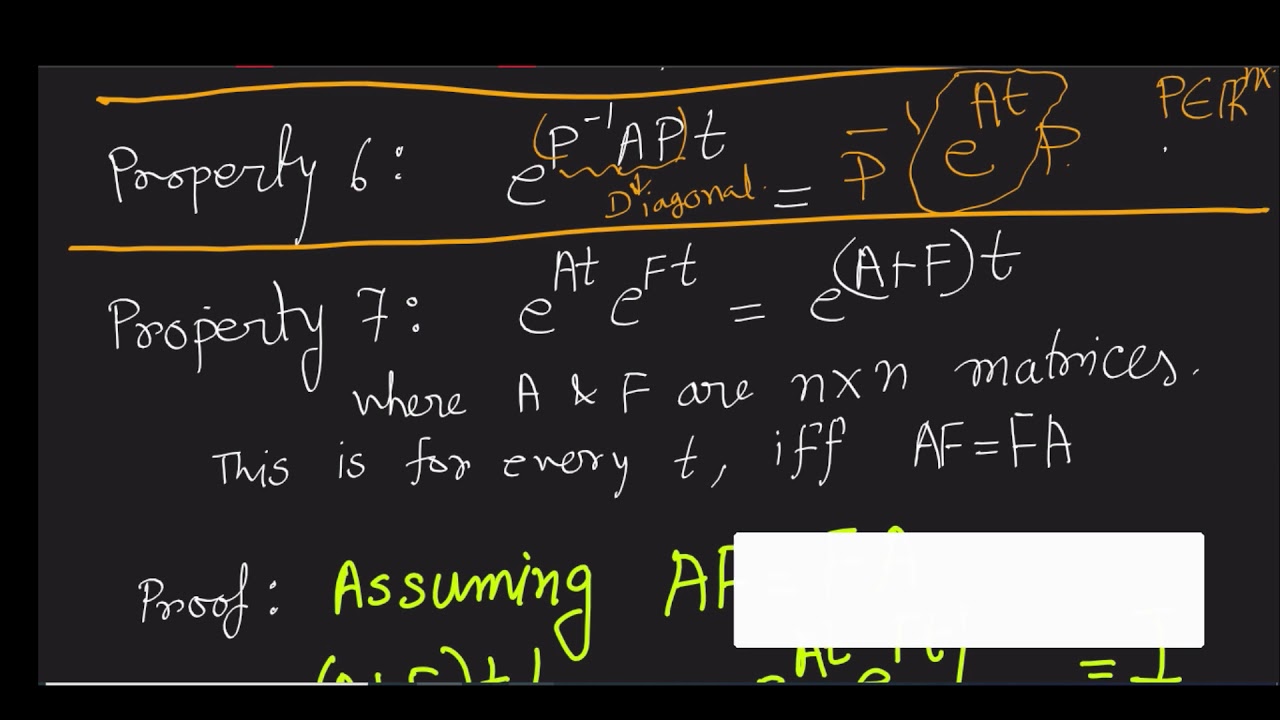 Property 6: e^(P⁻¹AP)t = P⁻¹ e^At P. P∈ℝ^nx
Diagonal.
Property 7: e^At e^Ft = e^(A+F)t
where A & F are nxn matrices.
This is for every t, iff AF=FA
Proof: Assuming AF
= I